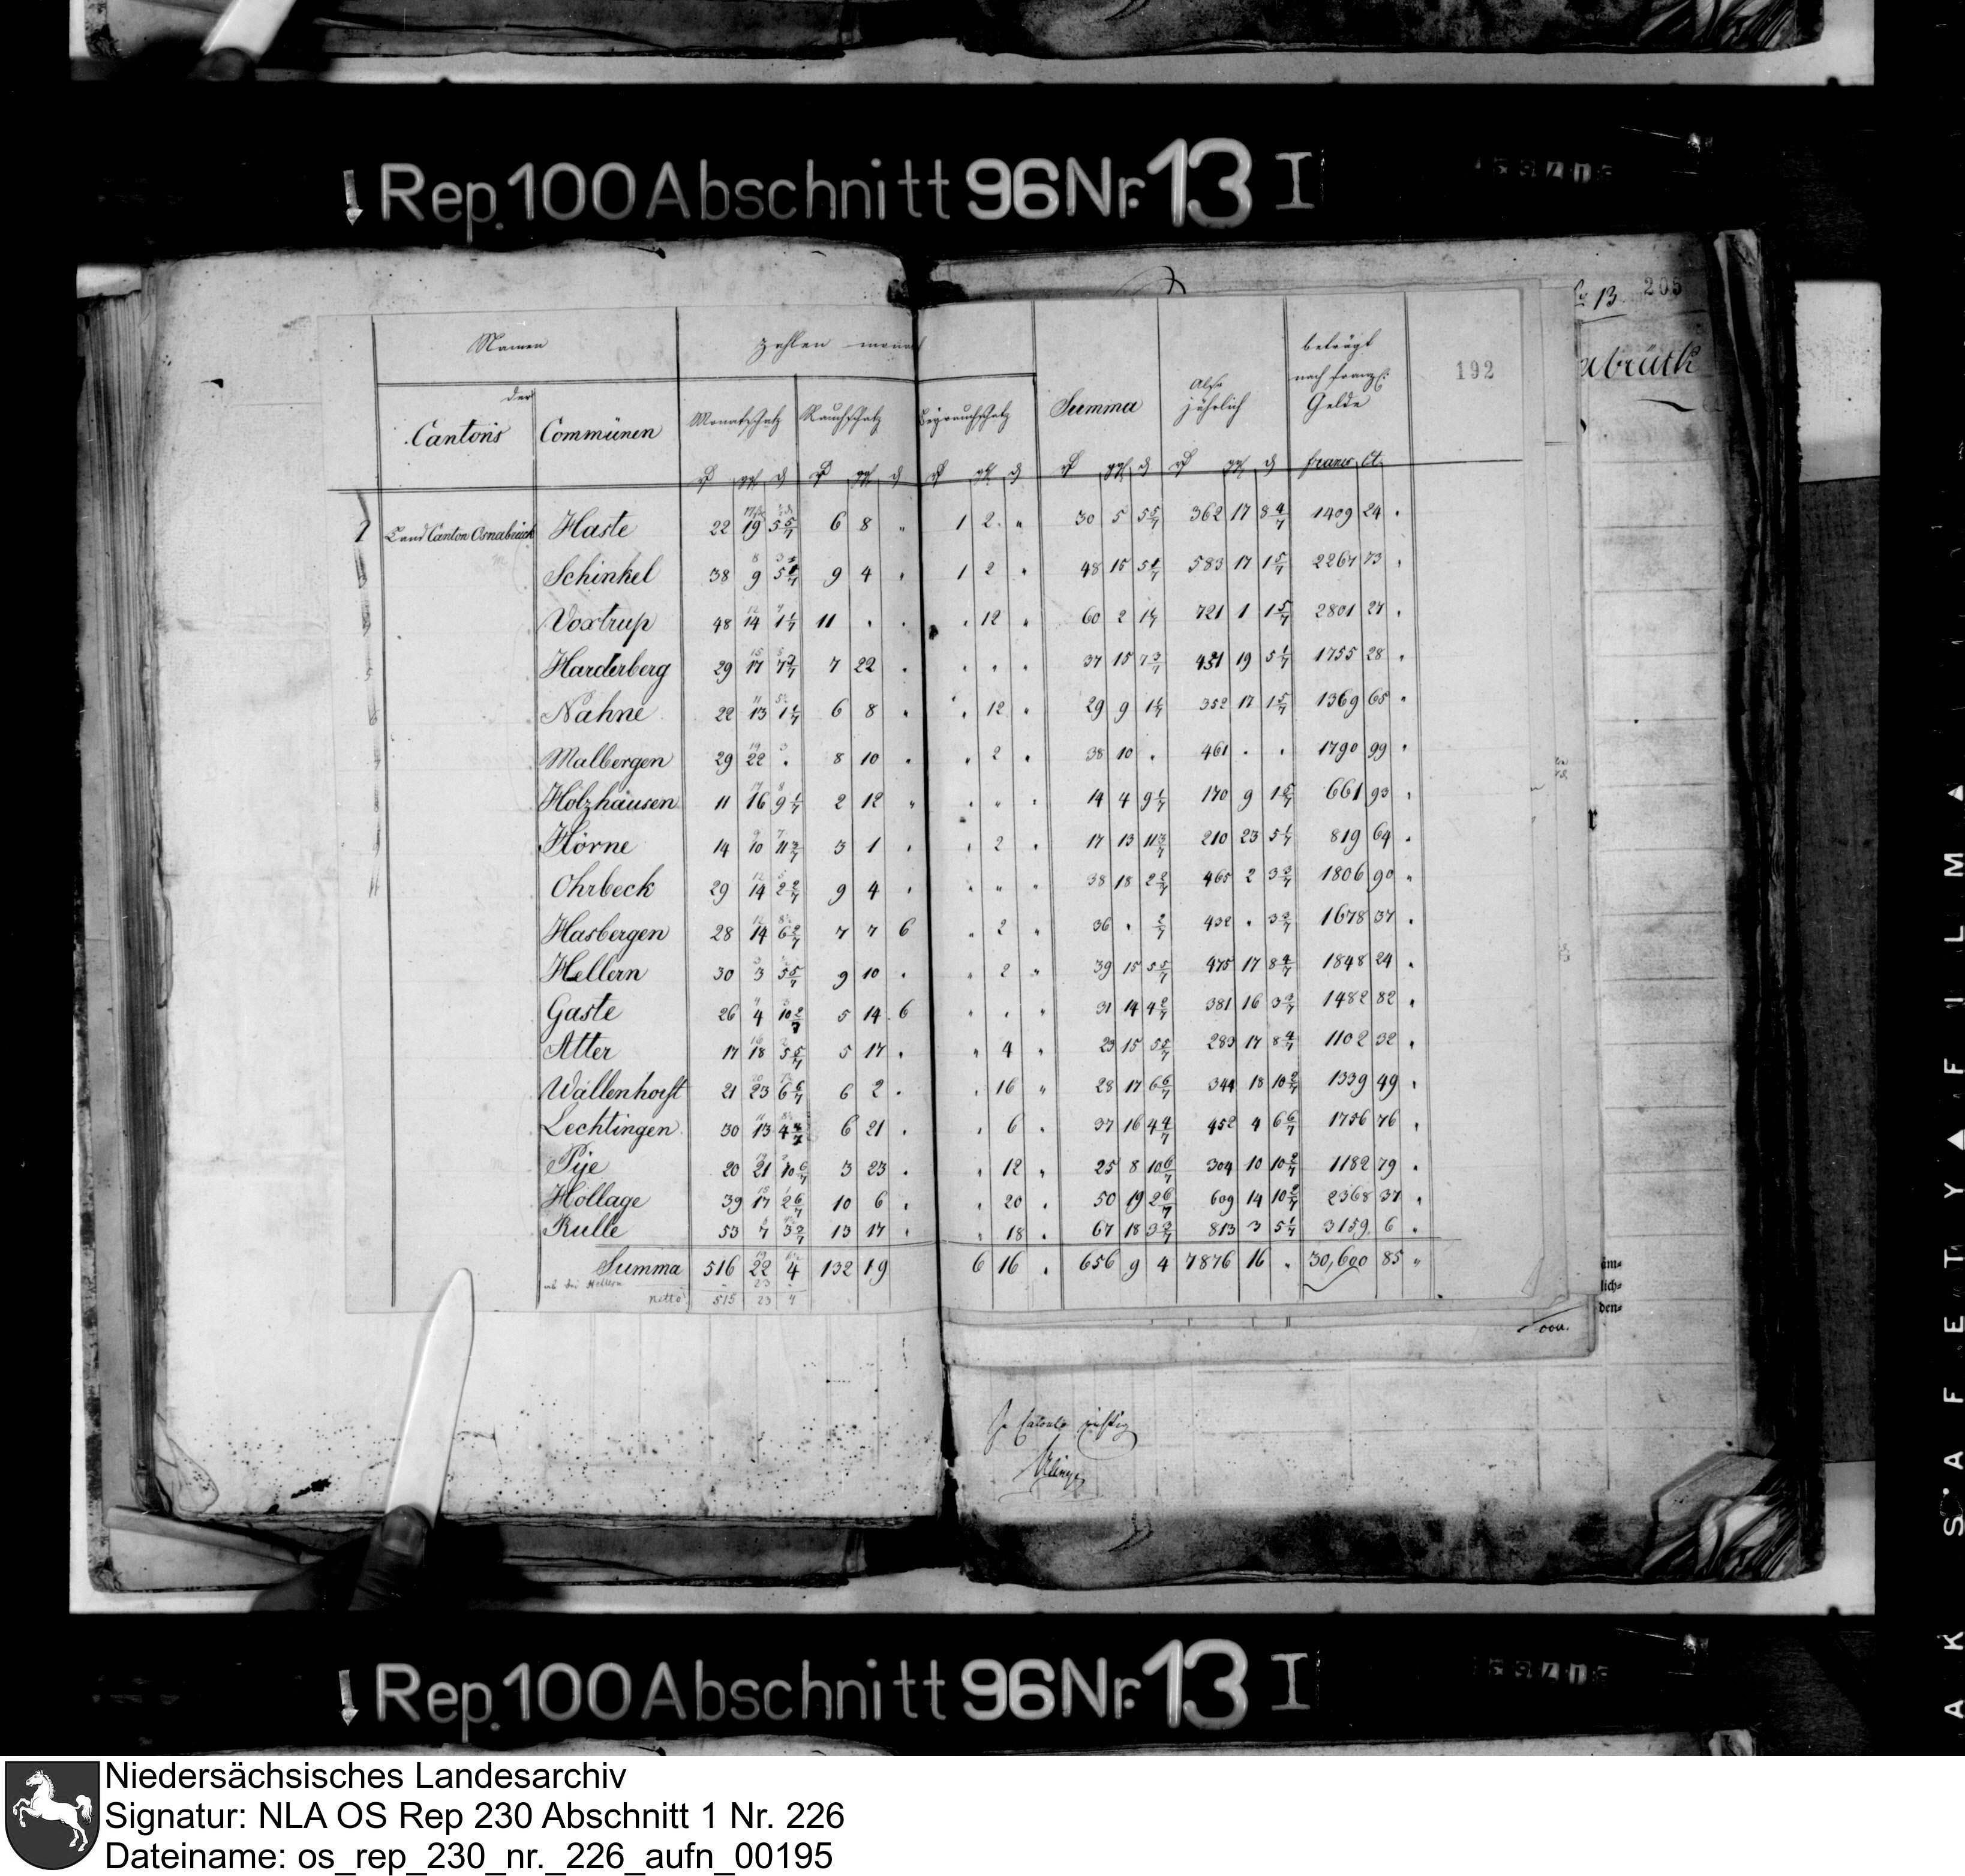 Rep. 100 Abschnitt 96 Nr. 13 I
No 13 206
192
Namen zahlen monat beträgt
der nach französ:
Cantons Commünen Monatschatz Rauchschatz Beyrauchschatz Summa Also jährlich Gelde
francs Ct.
2 Land Canton Osnabrück Haste 22 19 5 5/7 6 8 " 1 2 " 30 5 5 5/7 362 17 8 4/7 1409 24
Schinkel 38 9 5 1/7 9 4 " 1 2 " 48 15 5 1/7 583 17 1 5/7 2267 73
Voxtrup 48 14 1 1/7 11 " " " 12 " 60 2 1 1/7 721 1 1 5/7 2801 27
Harderberg 29 17 7 3/7 7 22 " " " " 37 15 7 3/7 451 19 5 1/7 1755 28
Nahne 22 13 1 1/7 6 8 " " 12 " 29 9 1 1/7 352 17 1 5/7 1369 65
Malbergen 29 22 " 8 10 " " 2 " 38 10 " 461 " " 1790 99
Holzhausen 11 16 9 1/7 2 12 " " " " 14 4 9 1/7 170 9 1 5/7 661 93
Hörne 14 10 11 3/7 3 1 " " 2 " 17 13 11 3/7 210 23 5 1/7 819 64
Ohrbeck 29 14 2 2/7 9 4 " " " " 38 18 2 2/7 465 2 3 3/7 1806 90
Hasbergen 28 14 6 2/7 7 7 6 " 2 " 36 " 2/7 432 " 3 3/7 1678 37
Hellern 30 3 5 5/7 9 10 " " 2 " 39 15 5 5/7 475 17 8 4/7 1848 24
Gaste 26 4 10 2/7 5 14 6 " " " 31 14 4 2/7 381 16 3 3/7 1482 82
Atter 17 18 5 5/7 5 17 " " 4 " 23 15 5 5/7 283 17 8 4/7 1102 32
Wallenhorst 21 23 6 6/7 6 2 " " 16 " 28 17 6 6/7 344 18 10 2/7 1339 49
Lechtingen 30 13 4 4/7 6 21 " " 6 " 37 16 4 4/7 452 4 6 6/7 1756 76
Pÿe 20 21 10 6/7 3 23 " " 12 " 25 8 10 6/7 304 10 10 2/7 1182 79
Hollage 39 17 2 6/7 10 6 " " 20 " 50 19 2 6/7 609 14 10 2/7 2368 37
Rulle 53 7 3 3/7 13 17 " " 18 " 67 18 3 3/7 813 3 5 1/7 3159 6
Summa 516 22 4 132 19 6 16 " 656 9 4 7876 16 " 30,600 85 "
Netto 515 23 4
äm=
lich=
den=
Rep. 100 Abschnitt 96 Nr. 13 I
AK SAFETY FILM
Niedersächsisches Landesarchiv
Signatur: NLA OS Rep 230 Abschnitt 1 Nr. 226
Dateiname: os_rep_230_nr._226_aufn_00195